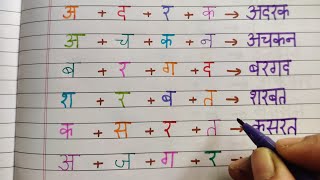 अ + द + र + क → अदरक
अ + च + क + न → अचकन
ब + र + ग + द → बरगद
श + र + ब + त → शरबत
क + स + र + त → कसरत
अ + ज + ग + र →